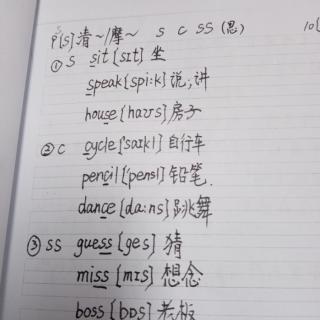 9 [s] 清~/摩~ s c ss (思) 10[
① s sit [sɪt] 坐
speak [spi:k] 说;讲
house [haʊs] 房子
② c cycle ['saɪkl] 自行车
pencil ['pensl] 铅笔
dance [da:ns] 跳舞
③ ss guess [ges] 猜
miss [mɪs] 想念
boss [bɒs] 老板